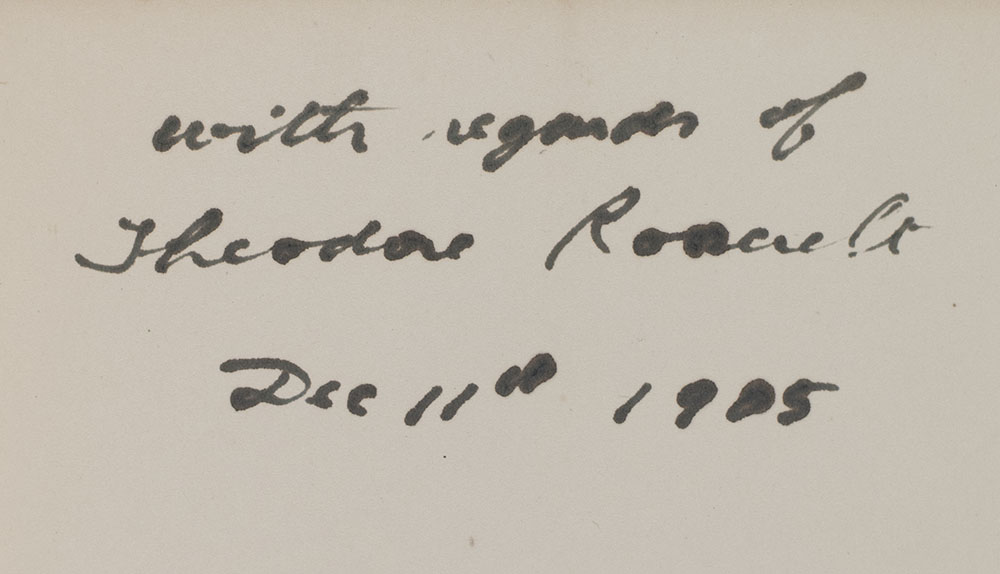 with regards of
Theodore Roosevelt
Dec 11th 1905